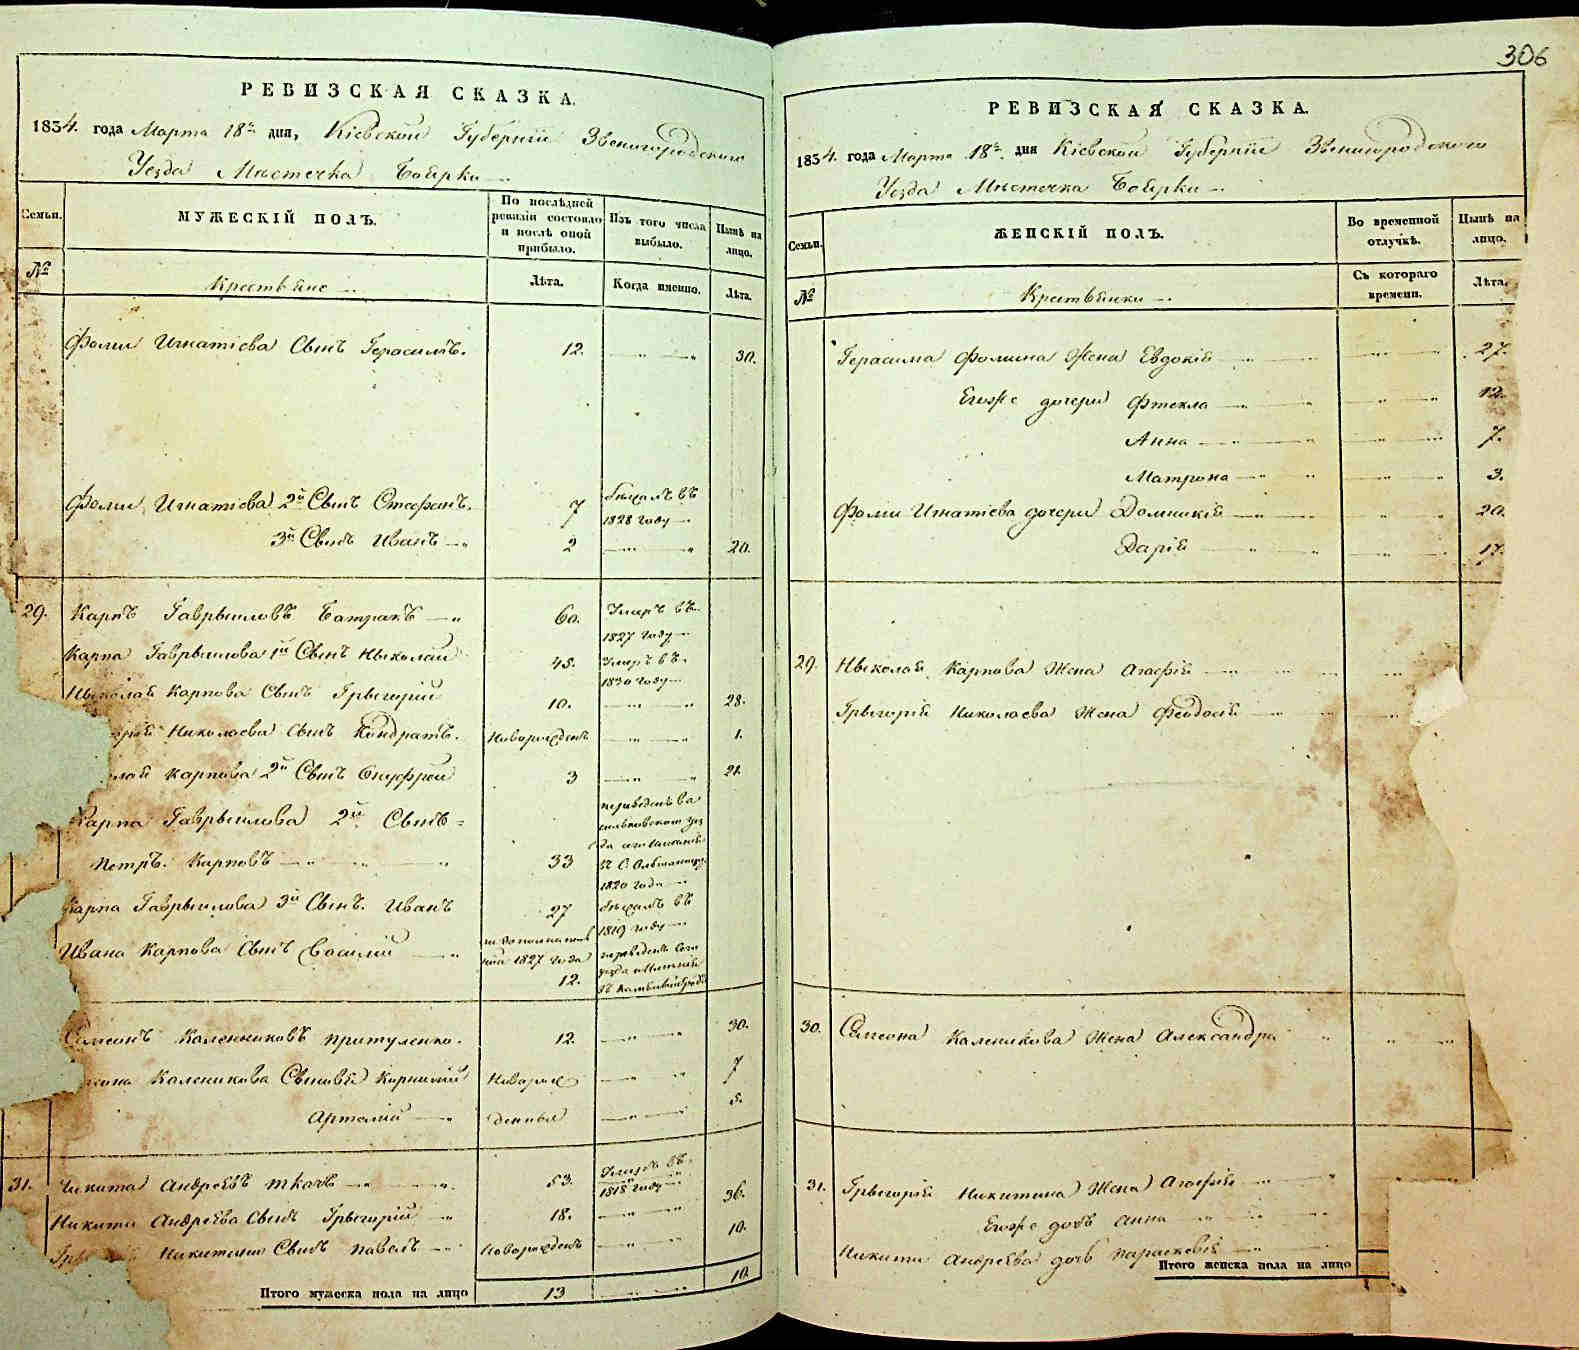 306
РЕВИЗСКАЯ СКАЗКА.
1834. года Марта 18го дня, Кіевской Губерніи Звенигородского
Уезда Мѣстечка Боярки
Семьи.
МУЖЕСКІЙ ПОЛЪ.
По послѣдней
ревизіи состояло
и послѣ оной
прибыло.
Изъ того числа
выбыло.
Нынѣ на
лицо.
№
Крестьяне
Лѣта.
Когда именно.
Лѣта.
Фомы Игнатіева Сынъ Герасимъ. 12. 30.
Фомы Игнатіева 2й Сынъ Стефанъ. 7 въ
1828 году
3й Сынъ Иванъ 2 20.
29. Карпъ Гаврыловъ Батракъ 60. Умеръ въ
1827 году
Карпа Гаврылова 1й Сынъ Ныколай 45. Умеръ въ
1830 году
Ныколая Карпова Сынъ Грыгорій 10. 28.
Николаева Сынъ Кондратъ. Новорожденъ 1.
Карпова 2й Сынъ Онуфрій 3 21.
Карпа Гаврылова 2й Сынъ
Петръ Карповъ 33
1820 года
Карпа Гаврылова 3й Сынъ. Иванъ 27 въ
1819 году
Ивана Карпова Сынъ Василій 1827 года
12.
Симеонъ Каленниковъ Притуленко. 12. 30.
Каленикова Сыновья Корнилій Новорож 7
Артемій денные 5.
31. Никита Андреевъ Ткачъ 53. Умеръ въ
1818 году
Никиты Андреева Сынъ Грыгорій 18. 36.
Никитина Сынъ Павелъ Новорожденъ 10.
Итого мужеска пола на лицо 13 10.
РЕВИЗСКАЯ СКАЗКА.
1834. года Марта 18го дня Кіевской Губерніи Звенигородского
Уезда Мѣстечка Боярки
Семьи.
ЖЕНСКІЙ ПОЛЪ.
Во временной
отлучкѣ.
Нынѣ на
лицо.
№
Крестьянки
Съ котораго
времени.
Лѣта.
Герасима Фомина Жена Евдокія 27.
Егоже дочери Фтекла 12.
Анна 7.
Матрона 3.
Фомы Игнатіева дочери Домникія 20.
Дарія 17.
29. Ныколая Карпова Жена Агафія
Грыгорія Николаева Жена Феодосія
30. Симеона Каленикова Жена Александра
31. Грыгорія Никитина Жена Агафія
Егоже дочь Анна
Никиты Андреева дочь Параскевія
Итого женска пола на лицо